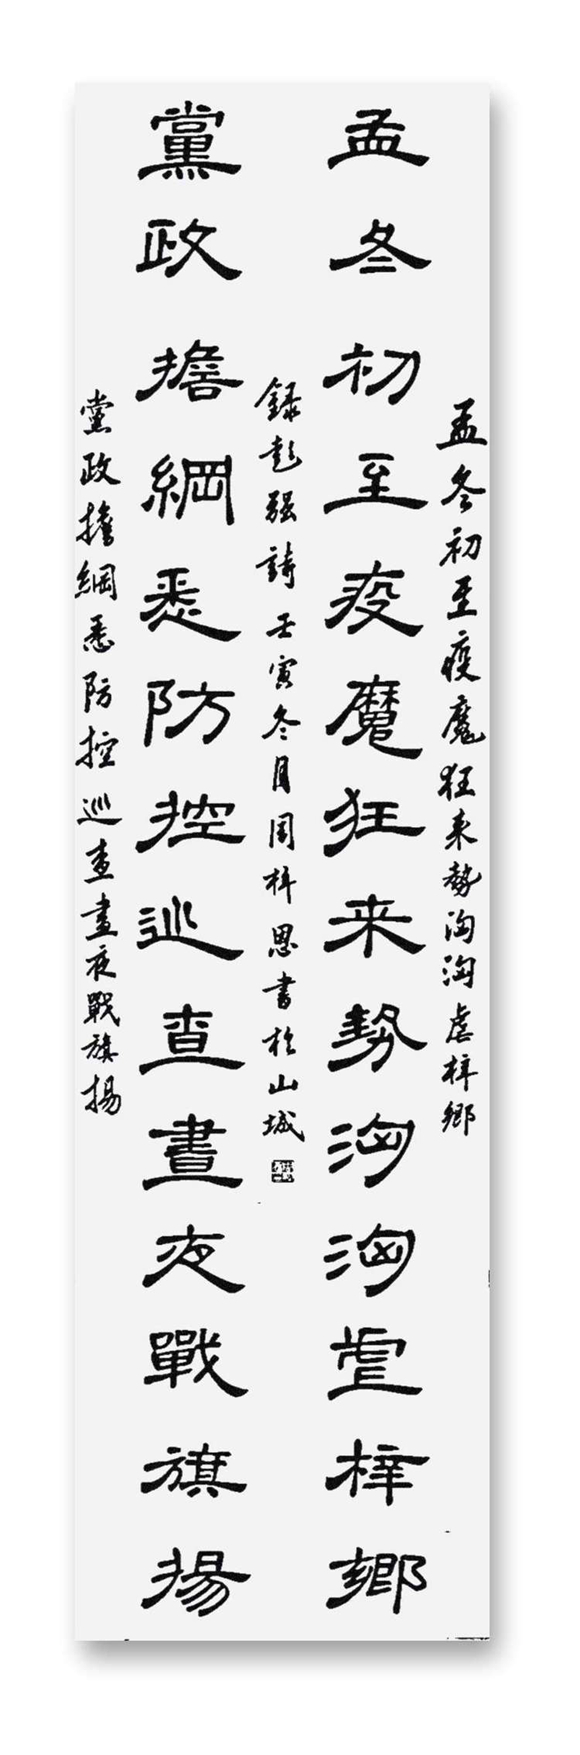 孟冬初至疫魔狂来勢洶洶虐梓鄉
孟冬初至疫魔狂来勢洶洶虐梓鄉
黨政擔綱悉防控巡查晝夜戰旗揚
録彭强詩壬寅冬月周梓恩書於山城
黨政擔綱悉防控巡查晝夜戰旗揚